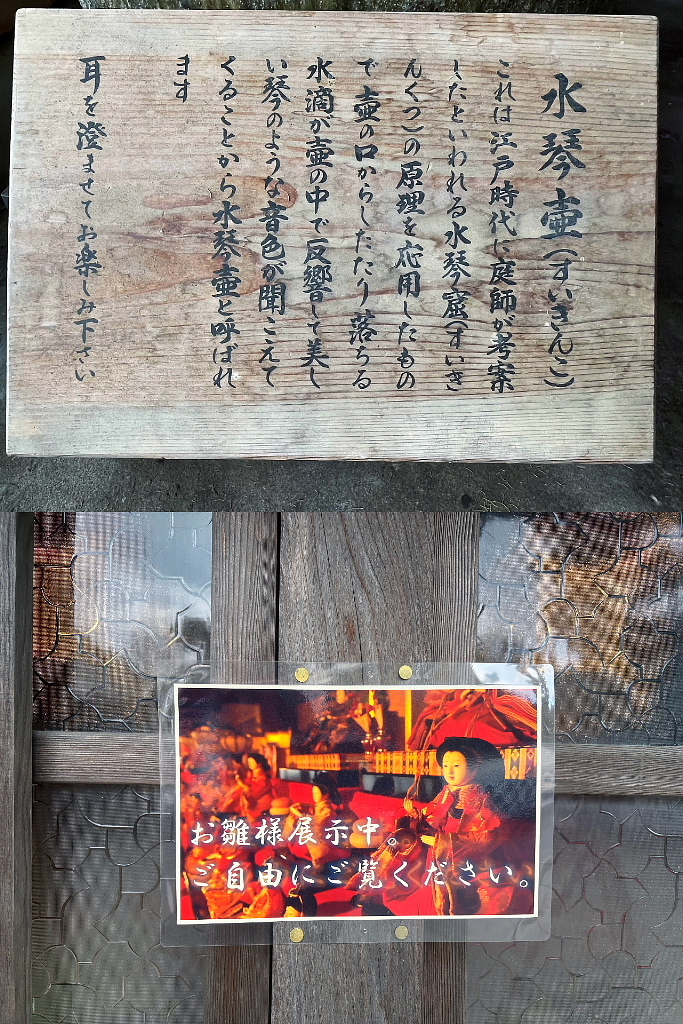 水琴壷(すいきんこ)
これは江戸時代に庭師が考案
したといわれる水琴窟(すいき
んくつ)の原理を応用したもの
で壷の口からしたたり落ちる
水滴が壷の中で反響して美し
い琴のような音色が聞こえて
くることから水琴壷と呼ばれ
ます
耳を澄ませてお楽しみ下さい
お雛様展示中。
ご自由にご覧ください。